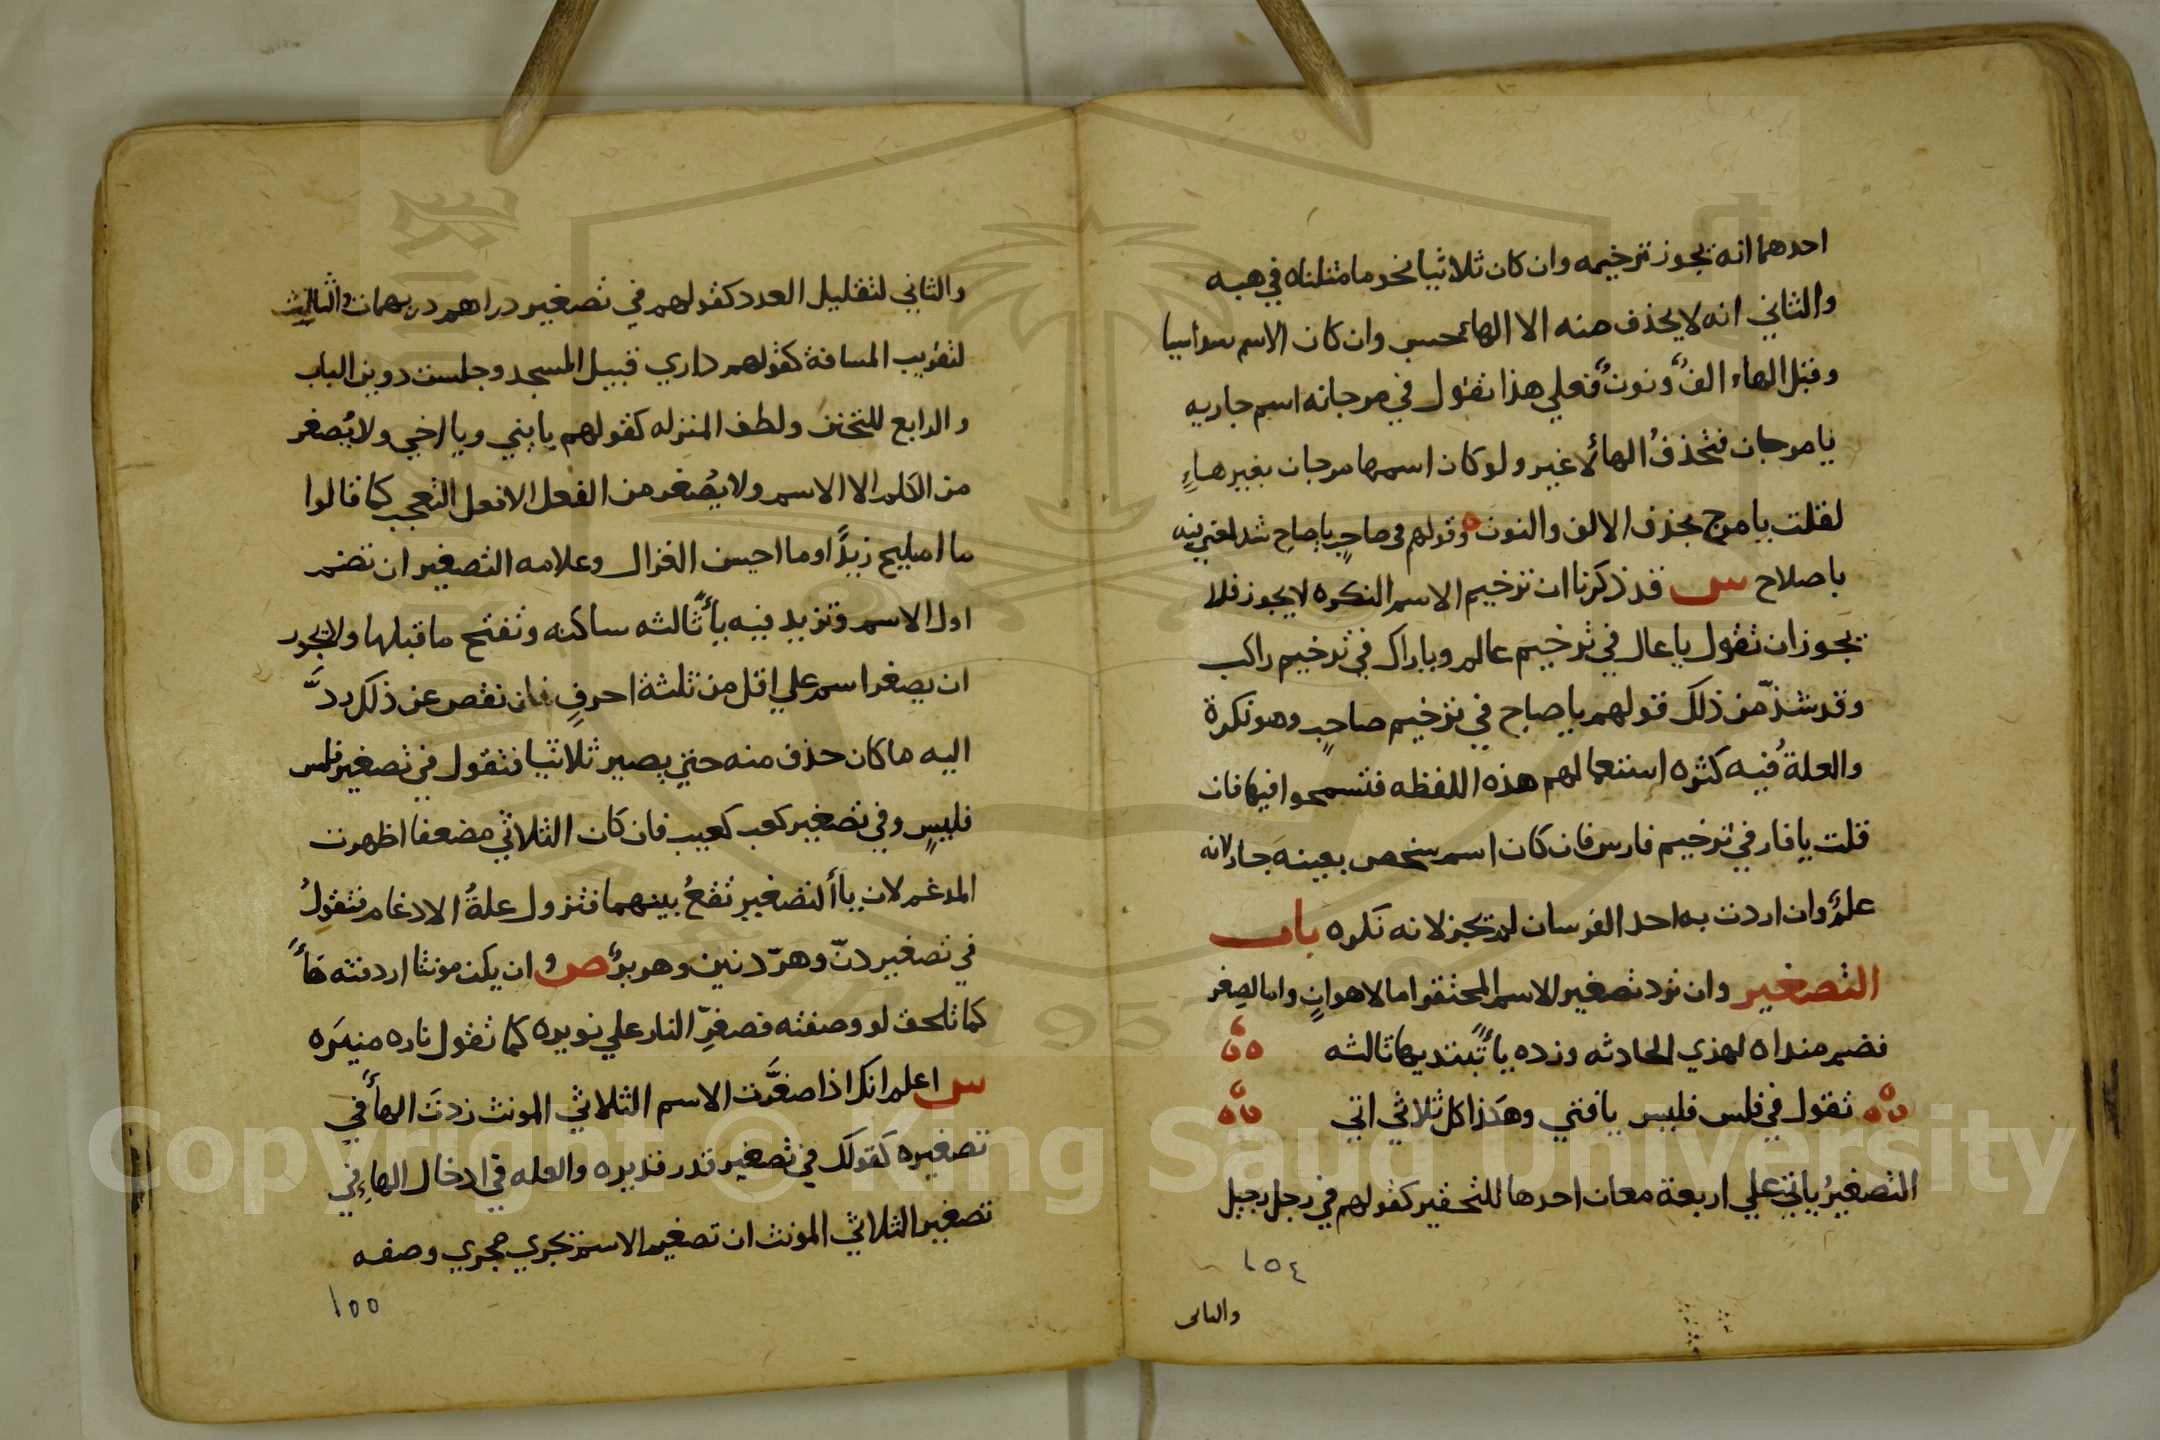 احدهما انه يجوز ترخيمه وان كان ثلاثيا نحو ما مثلناه في هبه
والثاني انه لا يحذف منه الا الهاء فحسب وان كان الاسم سداسيا
وقبل الهاء الف ونون فعلي هذا تقول في مرجانه اسم جاريه
يا مرجان فتحذف الهاء لا غير ولو كان اسمها مرجان بغير هاء
لقلت يا مرج بحذف الالف والنون وقولهم في صاحب يا صاح شذ لمعني فيه
باصلاح س قد ذكرنا ان ترخيم الاسم النكره لا يجوز فلا
يجوز ان تقول يا عال في ترخيم عالم ويا راك في ترخيم راكب
وقد شذ من ذلك قولهم يا صاح في ترخيم صاحب وهو نكرة
والعلة فيه كثره استعمالهم هذه اللفظه فتسمحوا فيها فان
قلت يا فار في ترخيم فارس فان كان اسم شخص بعينه جاز لانه
علم وان اردت به احد الفرسان لم تجز لانه نكره باب
التصغير وان ترد تصغير الاسم المحتقر اما لاهوان واما لصغر
فضم مبداه لهذي الحادثه وزده ياءً تبتديها ثالثه
تقول في فلس فليس يا فتي وهكذا كل ثلاثي اتي
التصغير ياتي علي اربعة معان احدها للتحقير كقولهم في رجل رجيل
١٥٤
والثاني
والثاني لتقليل العدد كقولهم في تصغير دراهم دريهمات والثالث
لتقريب المسافة كقولهم داري قبيل المسجد وجلست دوين الباب
والرابع للتحنن ولطف المنزله كقولهم يا بني ويا اخي ولا يصغر
من الكلم الا الاسم ولا يصغر من الفعل الا فعل التعجب كما قالوا
ما امليح زيدًا وما احيسن الغزال وعلامه التصغير ان تضم
اول الاسم وتزيد فيه ياءً ثالثه ساكنه وتفتح ما قبلها ولا يجوز
ان يصغر اسم علي اقل من ثلثة احرفٍ فان نقص عن ذلك ردَّ
اليه ما كان حذف منه حتي يصير ثلاثيا فتقول في تصغير فلس
فليسٍ وفي تصغير كعب كعيب فان كان الثلاثي مضعفا اظهرت
المدغم لان ياء التصغير تقعُ بينهما فتزول علةُ الادغام فتقولُ
في تصغير دنّ وهرّ دنين وهرير ص وان يكن مونثا اردفته هاءً
كما تلحق لو وصفته فصغرِّ النار علي نويره كما تقول ناره منيره
س اعلم انك اذا صغَّرت الاسم الثلاثي المونث زدتَ الهاءَ في
تصغيره كقولك في تصغير قدر قديره والعله في ادخال الهاءِ في
تصغير الثلاثي المونث ان تصغير الاسم يجري مجري وصفه
١٥٥
Copyright © King Saud University
1957